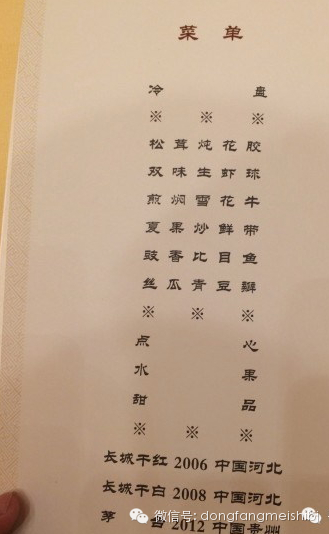 菜 单
冷 盘
※ ※ ※
松 茸 炖 花 胶
双 味 生 虾 球
煎 焖 雪 花 牛
夏 果 炒 鲜 带
豉 香 比 目 鱼
丝 瓜 青 豆 瓣
※ ※ ※
点 心
水 果
甜 品
※ ※ ※
长城干红 2006 中国河北
长城干白 2008 中国河北
微信号:
茅 台 2012 中国贵州